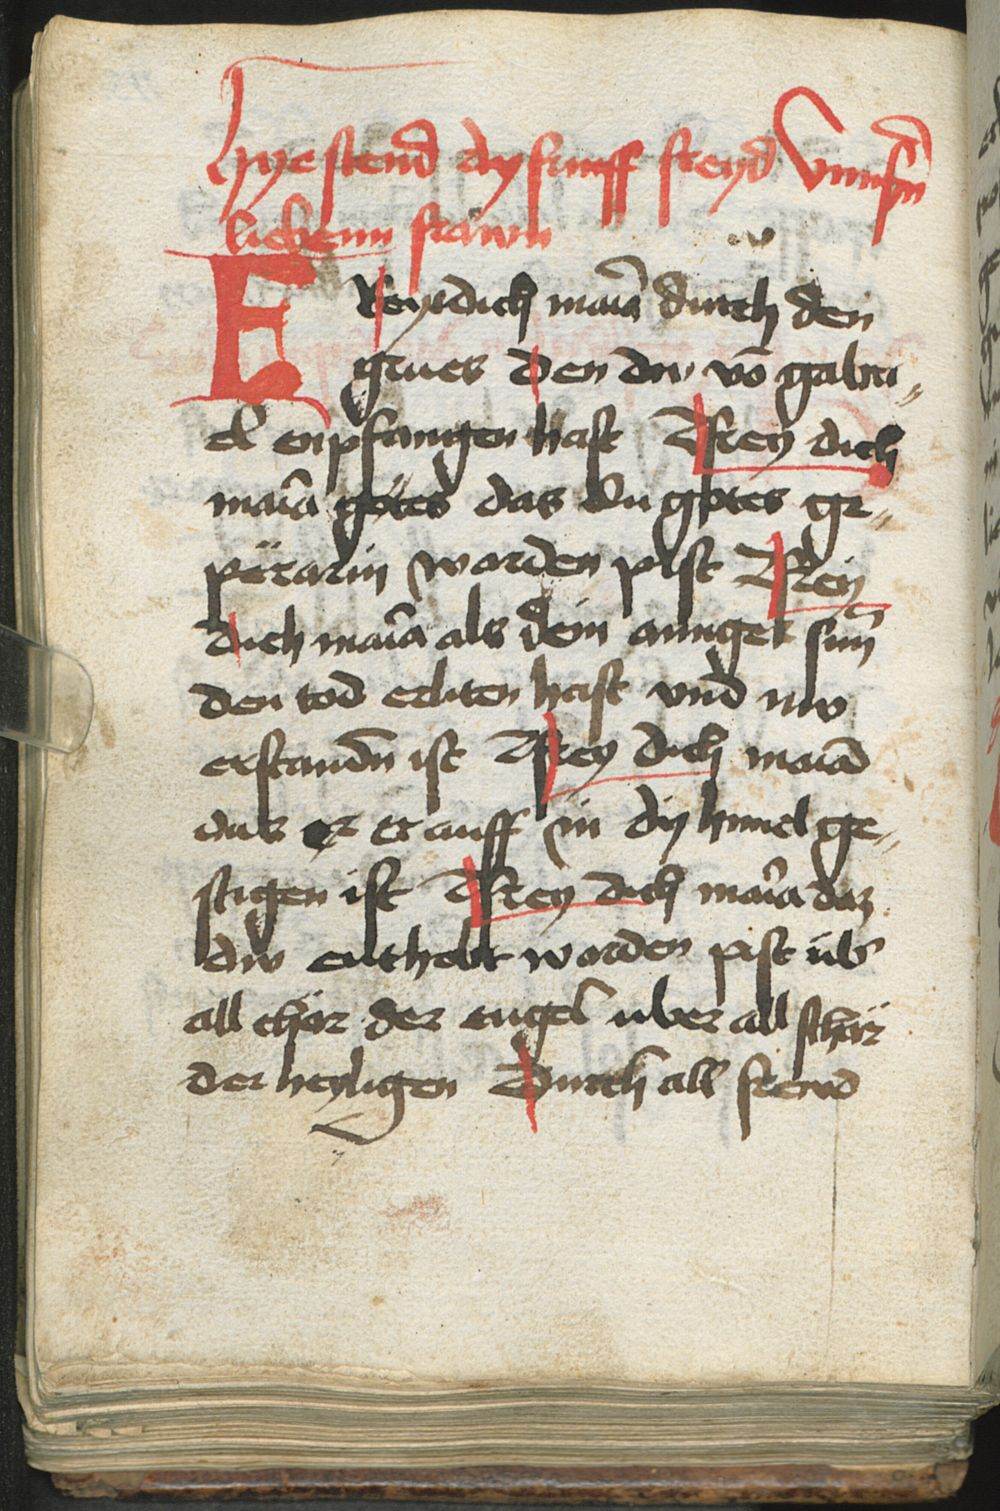 Hye stend dy funff freyd Unnser
liebenn frawn
FReyt dich maria durch den
grues den du vō gabri„
el enpfangen hast Frey dich
maria gotes das du gotes ge„
pererin worden pist Frey
dich maria als dein ainiger sun
den tod erliten hast vnd nw
erstandn ist Frey dich maria
das er auff in dy himel ge„
stigen ist Frey dich maria daz
dw enthebt worden pist vb̓
all chör der engel vber all schar
der heyligen Durch all frewd